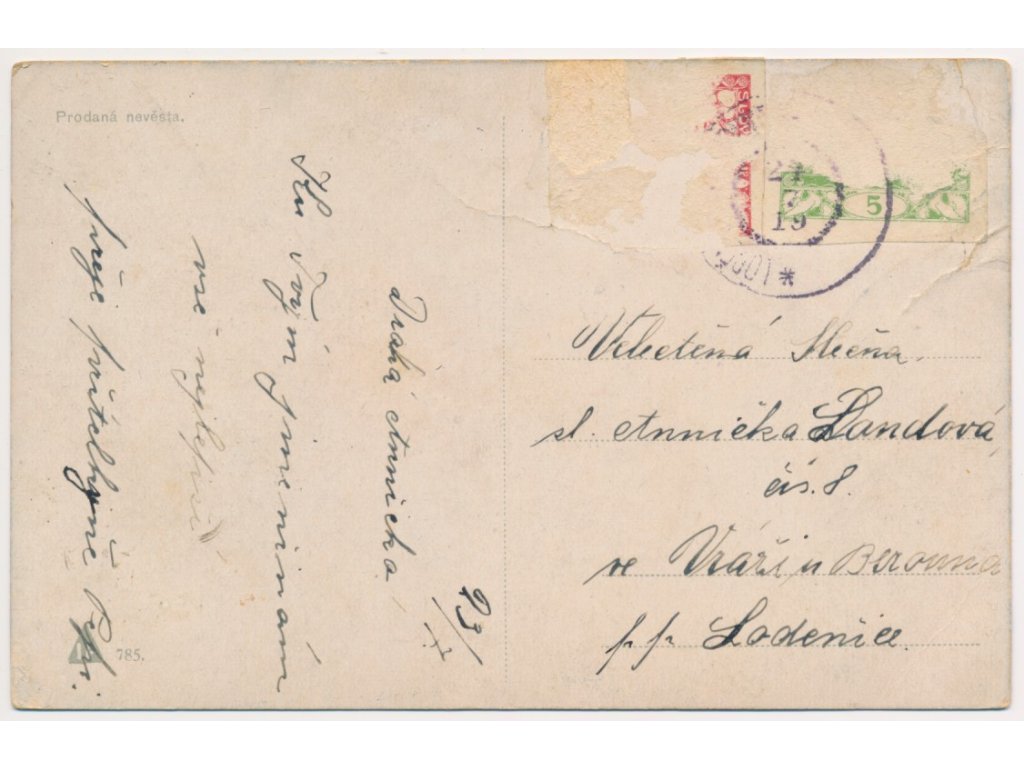 Prodaná nevěsta.
23/7
Drahá Annička
Ku Tvým jmeninám
vše nejlepší
přeje přítelkyně
785.
24
7
19
5
Velectěná Slečna
sl. Annička Landová
čís. 8.
ve Vráži u Berouna
pp Loděnice.